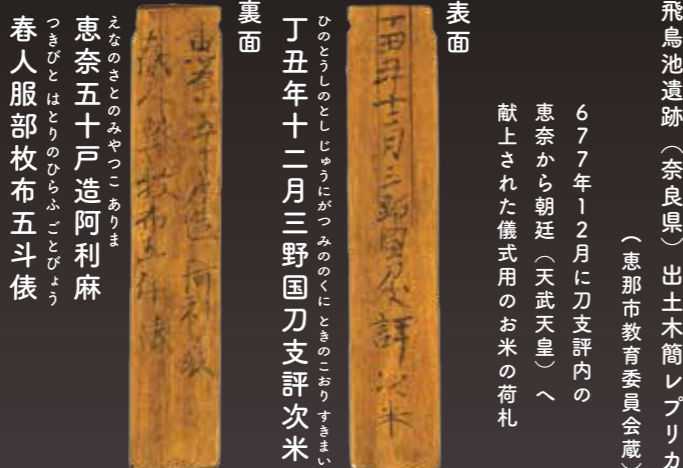 飛鳥池遺跡（奈良県）出土木簡レプリカ
（恵那市教育委員会蔵）
677年12月に刀支評内の
恵奈から朝廷（天武天皇）へ
献上された儀式用のお米の荷札
表面
丁丑年十二月三野国刀支評次米
ひのとうしのとし じゅうにがつ みののくに ときのこおり すきまい
丁丑年十二月三野国刀支評次米
裏面
恵奈五十戸造 阿利麻
春人服部枚布五斗俵
えなのさとのみやつこ ありま
恵奈五十戸造阿利麻
つきびと はとりのひらふ ごとびょう
春人服部枚布五斗俵